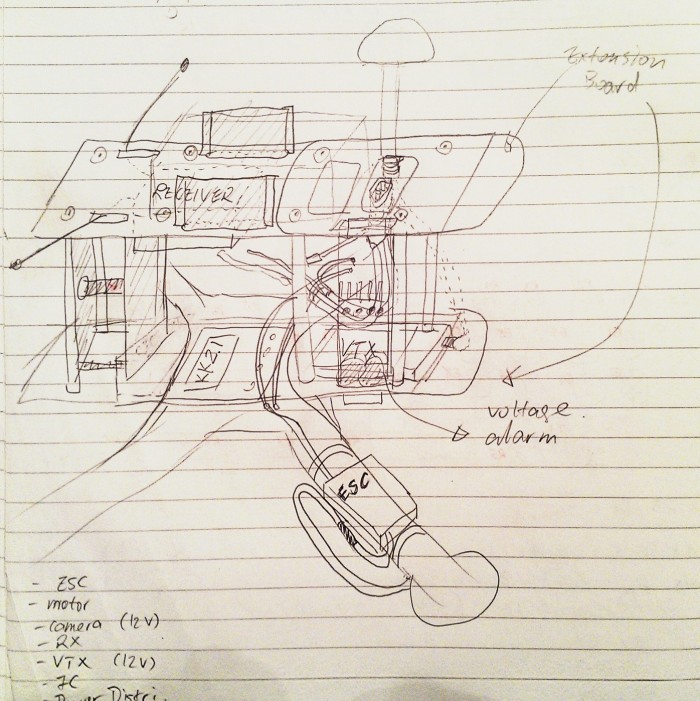 Extension
Board
RECEIVER
KK2.1
VTX
voltage
alarm
ESC
- ESC
- motor
- camera (12V)
- RX
- VTX (12V)
- FC
- Power Distri